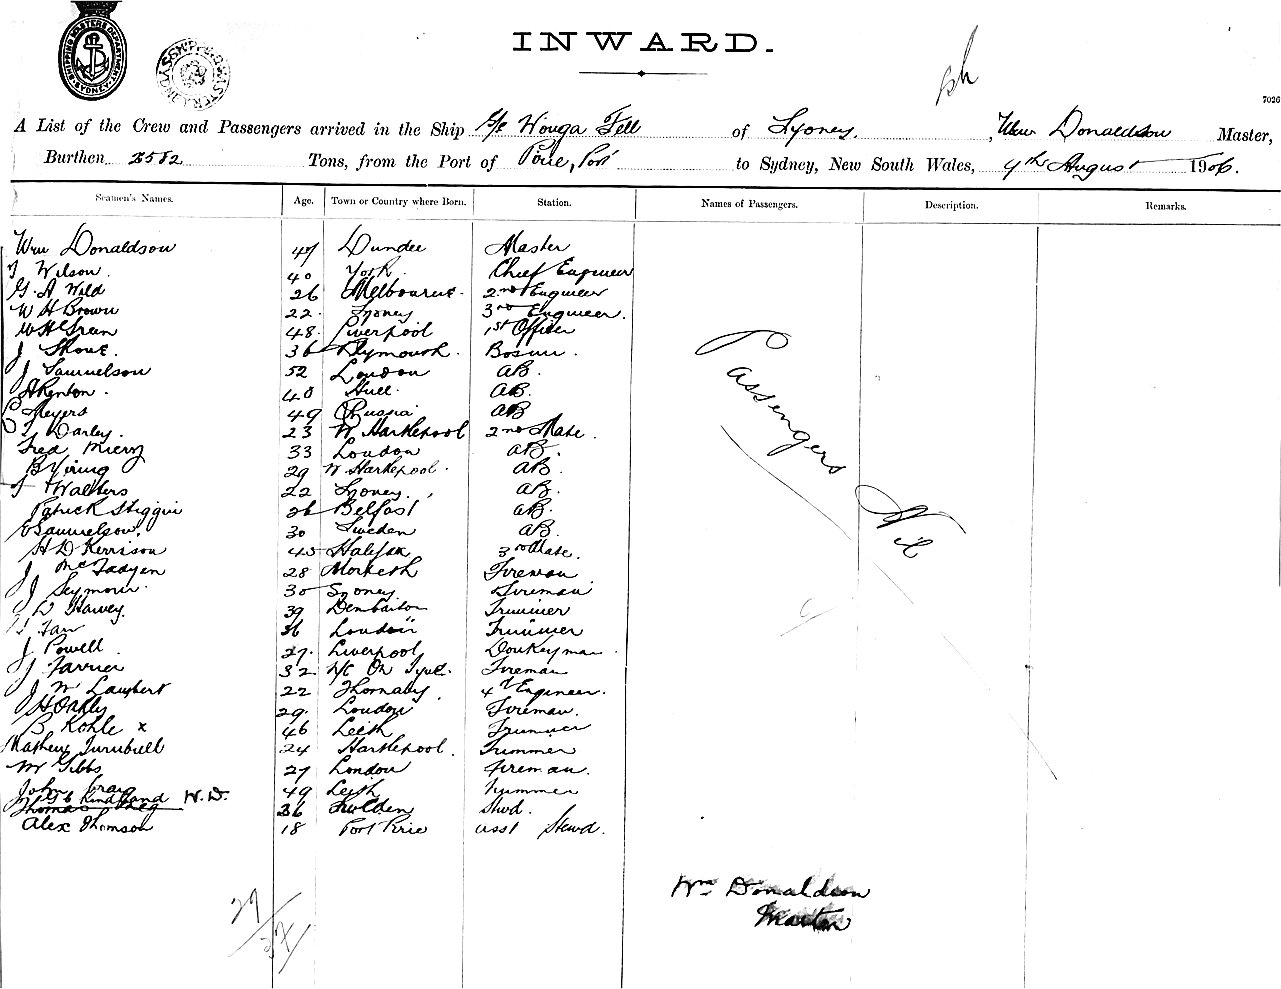 SHIPPING MASTERS DEPARTMENT SYDNEY
INWARD.
7026
A List of the Crew and Passengers arrived in the Ship S/S Wouga Fell of Sydney, Wm Donaldson Master,
Burthen 2582 Tons, from the Port of Pirie, Port to Sydney, New South Wales, 4th August 1906.
Seamen's Names. Age. Town or Country where Born. Station. Names of Passengers. Description. Remarks.
Wm Donaldson 47 Dundee Master
T Wilson. 40 York. Chief Engineer
G. A Wild 26 Melbourne. 2nd Engineer
W H Brown 22. Sydney 3rd Engineer.
W H Green 48. Liverpool 1st Officer
J 36 Plymouth. Bosun.
J Samuelson 52 London AB.
A Renton. 40 Hull. AB.
Meyers 49 Russia AB
T Darley. 23 W Hartlepool 2nd Mate.
Fred 33 London AB.
29 W Hartlepool. AB.
J Walters 22 Sydney. AB.
Patrick 26 Belfast AB.
E Samuelson. 30 Sweden AB.
H D Kerrison 45 Halifax 3rd Mate.
J McFadyen 28 Fireman
J Seymour. 30 Sydney Fireman
D Harvey. 39 Dumbarton Trimmer
Farr 36 London Trimmer
J Powell 27. Liverpool Donkeyman
J Farrier 32 N/C On Tyne. Fireman
J W Lambert 22 Thornaby 4th Engineer.
H Oakley 29. London Fireman.
B Kohle x 46 Leith Trimmer
Mathew Turnbull 24 Hartlepool. Trimmer
W Gibbs 27 London Fireman.
John Craig 49 Leith Trimmer
W.D.
Thomas 36 Stwd.
Alex Thomson 18 Port Pirie asst Stewd.
Passengers Nil
Wm Donaldson
Master